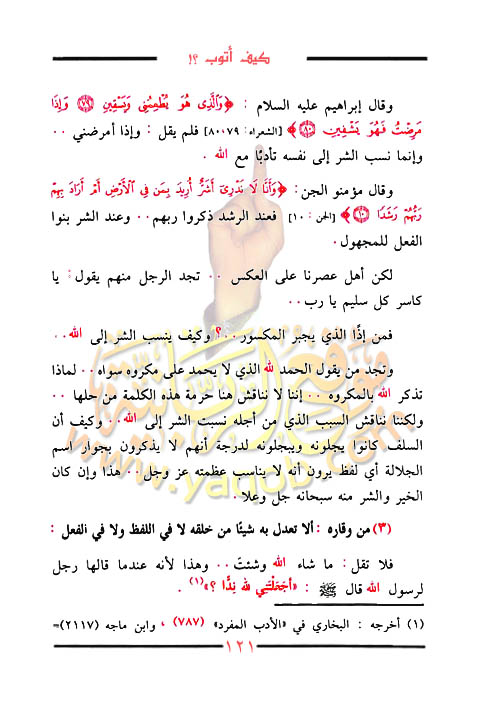 كيف أتوب ؟!
وقال إبراهيم عليه السلام : ﴿وَالَّذِي هُوَ يُطْعِمُنِي وَيَسْقِينِ ﴿٧٩﴾ وَإِذَا
مَرِضْتُ فَهُوَ يَشْفِينِ ﴿٨٠﴾﴾ [الشعراء: ٨٠،٧٩] فلم يقل : وإذا أمرضني ..
وإنما نسب الشر إلى نفسه تأدبًا مع الله .
وقال مؤمنو الجن: ﴿وَأَنَّا لَا نَدْرِي أَشَرٌّ أُرِيدَ بِمَن فِي الْأَرْضِ أَمْ أَرَادَ بِهِمْ
رَبُّهُمْ رَشَدًا ﴿١٠﴾﴾ [الجن: ١٠] فعند الرشد ذكروا ربهم.. وعند الشر بنوا
الفعل للمجهول.
لكن أهل عصرنا على العكس .. تجد الرجل منهم يقول: يا
كاسر كل سليم يا رب..
فمن إذًا الذي يجبر المكسور..؟ وكيف ينسب الشر إلى الله..
وتجد من يقول الحمد لله الذي لا يحمد على مكروه سواه.. لماذا
تذكر الله بالمكروه .. إننا لا نناقش هنا حرمة هذه الكلمة من حلها ..
ولكننا نناقش السبب الذي من أجله نسبت الشر إلى الله.. وكيف أن
السلف كانوا يجلونه ويبجلونه لدرجة أنهم لا يذكرون بجوار اسم
الجلالة أي لفظ يرون أنه لا يناسب عظمته عز وجل.. هذا وإن كان
الخير والشر منه سبحانه جل وعلا.
(٣) من وقاره : ألا تعدل به شيئًا من خلقه لا في اللفظ ولا في الفعل :
فلا تقل: ما شاء الله وشئت.. وهذا لأنه عندما قالها رجل
لرسول الله قال ﷺ : «أجَعَلْتَنِي لله نِدًّا ؟»(١) .
(١) أخرجه : البخاري في «الأدب المفرد» (٧٨٧) ، وابن ماجه (٢١١٧)=
١٢١
موقع الربانية
www.yaqob.com